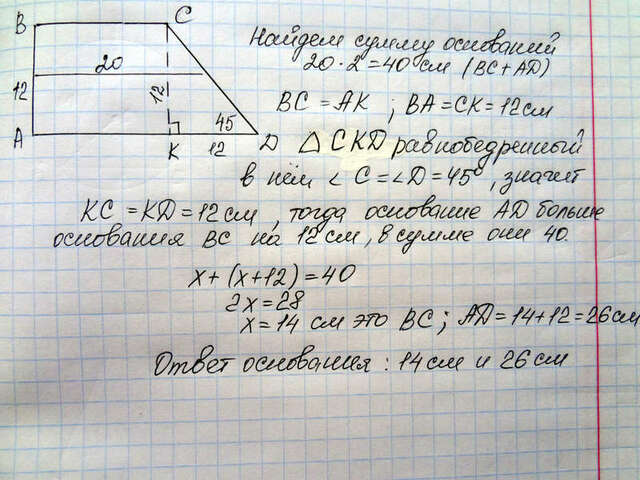 B
C
20
12
12
45
A
K
12
D
Найдем сумму оснований
20·2=40 см (BC+AD)
BC = AK ; BA=CK=12см
△ CKD равнобедренный
в нём ∠ C=∠D=45°, значит
KC =KD=12см, тогда основание AD больше
основания BC на 12 см, в сумме они 40.
x+(x+12)=40
2x=28
x=14 см это BC; AD=14+12=26см
Ответ основания: 14см и 26см